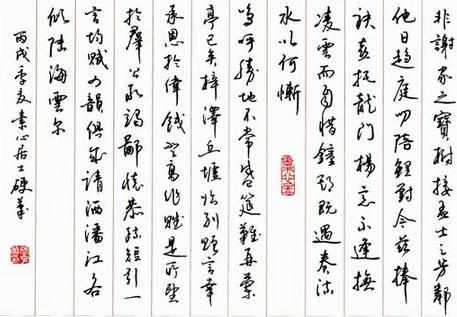 非謝家之寶樹接孟氏之芳鄰
他日趨庭叨陪鯉對今茲捧
袂喜托龍門楊意不逢撫
凌雲而自惜鍾期既遇奏流
水以何慚
嗚呼勝地不常盛筵難再蘭
亭已矣梓澤丘墟臨別贈言幸
承恩於偉餞登高作賦是所望
於羣公敢竭鄙懷恭疏短引一
言均賦四韻俱成請洒潘江各
傾陸海雲尔
丙戌季夏素心居士硬筆